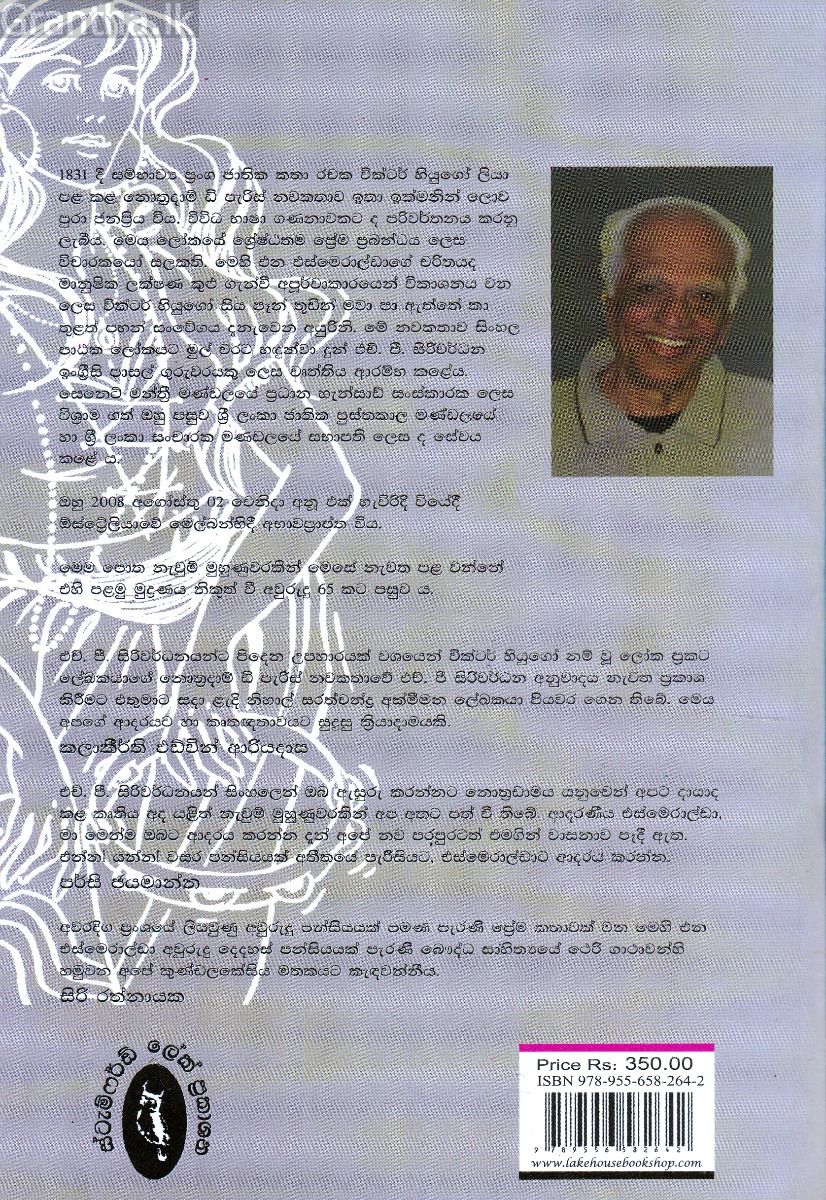 Grantha.lk
1831 දී සම්භාව්‍ය ප්‍රංශ ජාතික කතා රචක වික්ටර් හියුගෝ ලියා
පළ කළ නොත්‍රදාම් ඩි පැරිස් නවකතාව ඉතා ඉක්මනින් ලොව
පුරා ජනප්‍රිය විය. විවිධ භාෂා ගණනාවකට ද පරිවර්තනය කරනු
ලැබීය. මෙය ලෝකයේ ශ්‍රේෂ්ඨතම ප්‍රේම ප්‍රබන්ධය ලෙස
විචාරකයෝ සලකති. මෙහි එන එස්මෙරාල්ඩාගේ චරිතයද
මානුෂික ලක්ෂණ කුළු ගැන්වී අපූර්වාකාරයෙන් විකාශනය වන
ලෙස වික්ටර් හියුගෝ සිය පෑන් තුඩින් මවා පා ඇත්තේ කා
තුළත් පහන් සංවේගය දනැවෙන අයුරිනි. මේ නවකතාව සිංහල
පාඨක ලෝකයට මුල් වරට හඳුන්වා දුන් එච්. පී. සිරිවර්ධන
ඉංග්‍රීසි පාසල් ගුරුවරයකු ලෙස වෘත්තිය ආරම්භ කළේය.
සෙනෙට් මන්ත්‍රී මණ්ඩලයේ ප්‍රධාන හැන්සාඩ් සංස්කාරක ලෙස
විශ්‍රාම ගත් ඔහු පසුව ශ්‍රී ලංකා ජාතික පුස්තකාල මණ්ඩලයේ
හා ශ්‍රී ලංකා සංචාරක මණ්ඩලයේ සභාපති ලෙස ද සේවය
කළේ ය.
ඔහු 2008 අගෝස්තු 02 වෙනිදා අනූ එක් හැවිරිදි වියේදී
ඕස්ට්‍රේලියාවේ මෙල්බන්හිදී අභාවප්‍රාප්ත විය.
මෙම පොත නැවුම් මුහුණුවරකින් මෙසේ නැවත පළ වන්නේ
එහි පළමු මුද්‍රණය නිකුත් වී අවුරුදු 65 කට පසුව ය.
එච්. පී. සිරිවර්ධනයන්ට පිදෙන උපහාරයක් වශයෙන් වික්ටර් හියුගෝ නම් වූ ලෝක ප්‍රකට
ලේඛකයාගේ නොත්‍රදාම් ඩි පැරිස් නවකතාවේ එච්. පී සිරිවර්ධන අනුවාදය නැවත ප්‍රකාශ
කිරීමට එතුමාට සදා ළැදි නිහාල් සරත්චන්ද්‍ර අක්මීමන ලේඛකයා පියවර ගෙන තිබේ. මෙය
අපගේ ආදරයට හා කෘතඥතාවයට සුදුසු ක්‍රියාදාමයකි.
කලාකීර්ති එඩ්වින් ආරියදාස
එච්. පී. සිරිවර්ධනයන් සිංහලෙන් ඔබ ඇසුරු කරන්නට නොත්‍රඩාමය යනුවෙන් අපට දායාද
කළ කෘතිය අද යළිත් නැවුම් මුහුණුවරකින් අප අතට පත් වී තිබේ. ආදරණීය එස්මෙරාල්ඩා,
මා මෙන්ම ඔබට ආදරය කරන්න දැන් අපේ නව පරපුරටත් එමගින් වාසනාව පෑදී ඇත.
එන්න! යන්න! වසර පන්සියයක් අතීතයේ පැරීසියට, එස්මෙරාල්ඩාට ආදරය කරන්න.
පර්සි ජයමාන්න
අවරදිග ප්‍රංශයේ ලියවුණු අවුරුදු පන්සියයක් පමණ පැරණි ප්‍රේම කතාවක් වන මෙහි එන
එස්මෙරාල්ඩා අවුරුදු දෙදහස් පන්සියයක් පැරණි බෞද්ධ සාහිත්‍යයේ ථෙරි ගාථාවන්හි
හමුවන අපේ කුණ්ඩලකේසිය මතකයට කැඳවන්නීය.
සිරි රත්නායක
ස්ටැම්ෆර්ඩ් ලේක් ප්‍රකාශන
Price Rs: 350.00
ISBN 978-955-658-264-2
9 789556 582642
www.lakehousebookshop.com